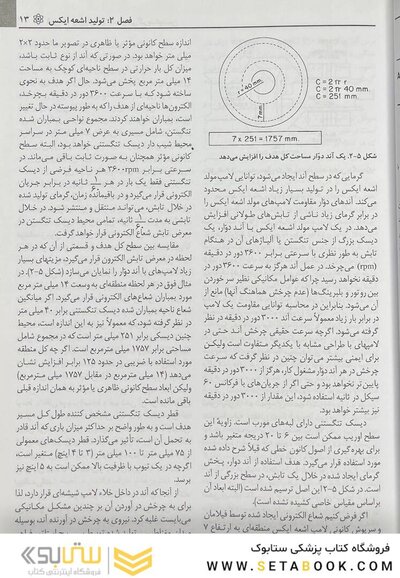 فصل ۲: تولید اشعه ایکس ۱۳
r=40 mm
7 mm
C = 2 π r
C = 2 π 40 mm
C = 251 mm
7 x 251 = 1757 mm.
شکل ۵-۲. یک آند دوّار مساحت کل هدف را افزایش می‌دهد
گرمایی که در سطح آند ایجاد می‌شود، توانایی لامپ مولد
اشعه ایکس را در تولید بسیار زیاد اشعه ایکس محدود
می‌کند. آندهای دوّار مقاومت لامپ‌های مولد اشعه ایکس را
در برابر گرمای زیاد ناشی از تابش‌های طولانی افزایش
می‌دهد. در یک لامپ مولد اشعه ایکس با آند دوّار، یک
دیسک بزرگ از جنس تنگستن یا آلیاژهای آن در هنگام
تابش به طور نظری با سرعتی برابر ۳۶۰۰ دور در دقیقه
(rpm) می‌چرخد. در عمل آند هرگز به سرعت ۳۶۰۰ دور در
دقیقه نخواهد رسید چرا که عوامل مکانیکی نظیر سر خوردن
بین روتور و بلبرینگ‌ها (عدم چرخش هماهنگ آنها) مانع از
آن می‌شود. بنابراین در محاسبه توانایی مقاومت یک لامپ
در برابر بار زیاد معمولاً سرعت آند ۳۰۰۰ دور در دقیقه در نظر
گرفته می‌شود. اگرچه سرعت حقیقی چرخش آند حتی در
لامپ‌های با طراحی مشابه با یکدیگر متفاوت است ولیکن
برای ایمنی بیشتر می توان چنین در نظر گرفت که سرعت
چرخش در هر آند دوّار مشغول کار، هرگز از ۳۰۰۰ دور در دقیقه
پایین‌تر نخواهد بود و حتی اگر از جریان‌های با فرکانس ۶۰
سیکل در ثانیه استفاده شود، این مقدار از ۳۰۰۰ دور در دقیقه
نیز بیشتر خواهد بود.
دیسک تنگستنی دارای لبه‌های مورب است. زاویهٔ این
سطح اوریب ممکن است بین ۶ تا ۲۰ دریجه متغیر باشد و
برای بهره‌گیری از اصول کانون خطی که قبلاً شرح داده شده
مورد استفاده قرار می‌گیرد. هدف استفاده از آند دوّار، پخش
گرمای ایجاد شده در خلال یک تابش، در سطح بزرگی از آند
است. در شکل ۵-۲ این اصل ترسیم شده است (البته ابعاد آن
براساس مقیاس خاصی کشیده نشده است).
اگر فرض کنیم شعاع الکترونی ایجاد شده توسط فیلامان
و سرپوش کانونی لامپ اشعه ایکس منطقه‌ای به ارتفاع ۷
اندازه سطح کانونی مؤثر یا ظاهری در تصویر ما حدود ۲×۲
میلی متر خواهد بود. در صورتی که آند از نوع ثابت باشد،
میزان کل بار حرارتی در سطح ناحیه‌ای کوچک به مساحت
۱۴ میلی متر مربع پخش می‌شود. حال اگر هدف به نحوی
ساخته شود که با سرعت ۳۶۰۰ دور در دقیقه بچرخد،
الکترون‌ها ناحیه‌ای از هدف را که به طور پیوسته در حال تغییر
است، بمباران خواهند کرد. مجموع نواحی بمباران شده
تنگستن، شامل مسیری به عرض ۷ میلی متر در سراسر
محیط شیب دار دیسک تنگستنی خواهد بود، البته سطح
کانونی مؤثر همچنان به صورت ثابت باقی می‌ماند. در
سرعتی برابر ۳۶۰۰rpm هر ناحیه فرضی از دیسک
تنگستنی فقط یک بار در هر ۱/۶۰ ثانیه در برابر جریان
الکترونی قرار می‌گیرد و در باقیمانده زمان، گرمای تولید شده
در خلال تابش، می‌تواند منتقل و منتشر شود. در خلال
تابشی به مدت ۱/۶۰ ثانیه، تمامی محیط دیسک تنگستن در
معرض تابش شعاع الکترونی قرار خواهد گرفت.
مقایسه بین سطح کل هدف و قسمتی از آن که در هر
لحظه در معرض تابش الکترون قرار می‌گیرد، مزیتهای بسیار
زیاد لامپ‌های با آند دوّار را نمایان می‌سازد (شکل ۵-۲). در
مثال فوق در هر لحظه منطقه‌ای به وسعت ۱۴ میلی متر مربع
مورد بمباران شعاع‌های الکترونی قرار می‌گیرد. اگر میانگین
شعاع ناحیه بمباران شده دیسک تنگستنی برابر ۴۰ میلی متر
در نظر گرفته شود، که معمولاً نیز به این اندازه است، محیط
چنین دیسکی برابر ۲۵۱ میلی متر است که در مجموع شامل
مساحتی برابر ۱۷۵۷ میلی متر مربع است. اگر چه کل منطقه
مورد استفاده با ضریبی در حدود ۱۲۵ برابر افزایش نشان
می‌دهد (۱۴ میلی مترمربع در مقابل ۱۷۵۷ میلی مترمربع)
ولیکن ابعاد سطح کانونی ظاهری یا مؤثر به همان اندازه قبلی
باقی مانده است.
قطر دیسک تنگستنی مشخص کننده طول کل مسیر
هدف است و به طور واضح بر حداکثر میزان باری که آند قادر
به تحمل آن است، تأثیر می‌گذارد. قطر دیسک‌های معمولی
از ۷۵ میلی متر تا ۱۰۰ میلی متر (۳ تا ۴ اینچ) متغیر است،
اگرچه در یک تیوب با ظرفیت بالا ممکن است به ۵ اینچ نیز
برسد.
از آنجا که آند در داخل خلاء لامپ شیشه‌ای قرار دارد، لذا
برای به چرخش در آوردن آن بر چندین مشکل مکانیکی
می‌بایست غلبه کرد. نیروی به چرخش در آورنده آند، بوسیله
ستابوک
فروشگاه اینترنتی کتاب
فروشگاه کتاب پزشکی ستابوک
WWW.SETABOOK.COM